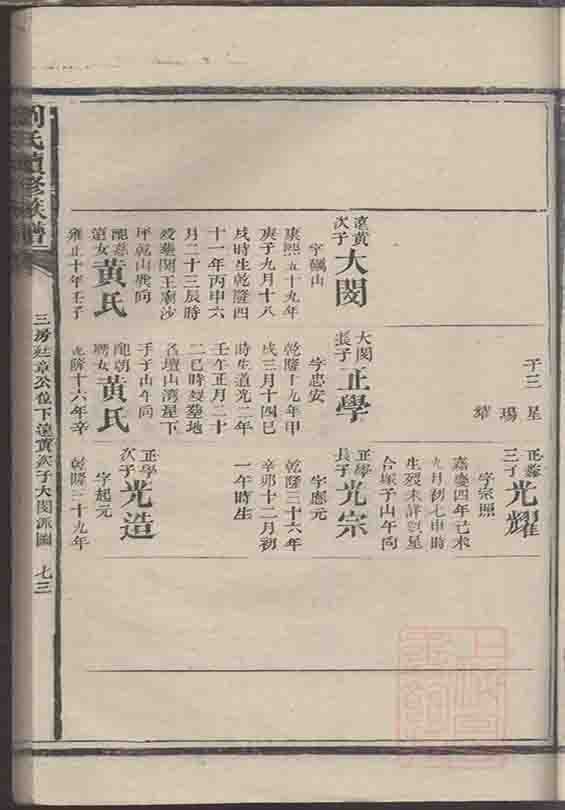 子三 星
瑒
正泰
三子 光耀
字宗照
嘉慶四年己未
九月初七申時
生歿未詳
合塚子山午向
遠賁
次子 大閔
字礪山
康熙五十九年
庚子九月十八
戌時生乾隆四
十一年丙申六
月二十三辰時
歿塟関王廟沙
坪乾山巽向
配
第女 黃氏
雍正十年壬子
大閔
長子 正學
字忠安
乾隆十九年甲
戌三月十四巳
時生道光二年
壬午正月二十
二巳時歿塟地
名壇山湾屋下
手子山午向
配朝
女 黃氏
乾隆十六年辛
正學
長子 光宗
字應元
乾隆三十六年
辛卯十二月初
一午時生
正學
次子 光造
字起元
乾隆三十九年
劉氏續修族譜
三房廷章公位下遠賁次子大閔派圖
七三